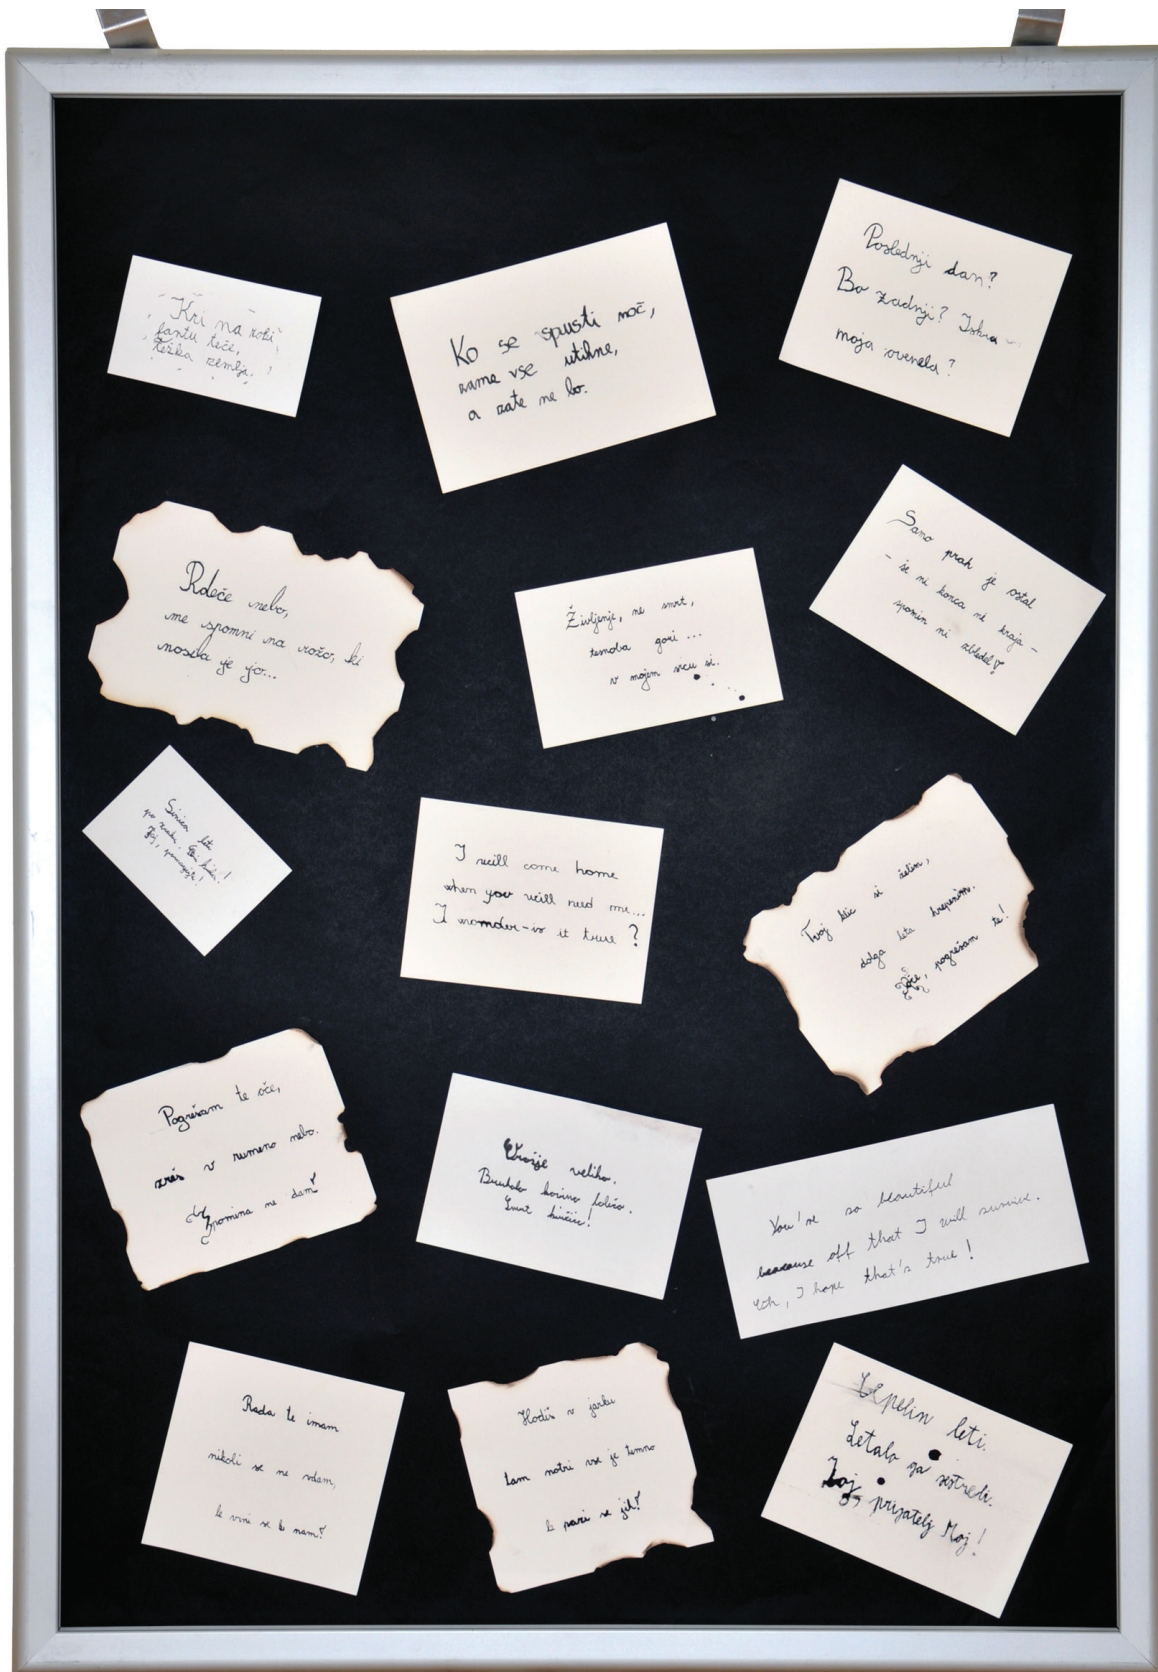 Kri na roki
fantu teče,
težka zemlja.
Ko se spusti noč,
zame vse utihne,
a zate ne bo.
Poslednji dan?
Bo zadnji? Iskra
moja ovenela?
Rdeče nebo,
me spomni na rožo, ki
nosila je jo...
Življenje, ne smrt,
temoba gori ...
v mojem srcu si.
Samo prah je ostal
- še ni konca ne kraja -
spomin ni zbledel!
leti
po zraku.
I will come home
when you will need me...
I wonder-is it true ?
Tvoj klic si želim,
dolga leta hrepenim.
Oče, pogrešam te!
Pogrešam te oče,
zreš v rumeno nebo.
Spomina ne dam!
Orožje veliko.
Brutalo kovino bolečo.
Smrt kriči!
You're so beautiful
beacause off that I will survive.
Uh, I hope that's true !
Rada te imam
nikoli se ne vdam,
le vrni se k nam!
Hodiš v jarku
tam notri vse je temno
le pazi se jih!
Cepelin leti.
Letalo ga sestreli.
Joj prijatelj Moj!